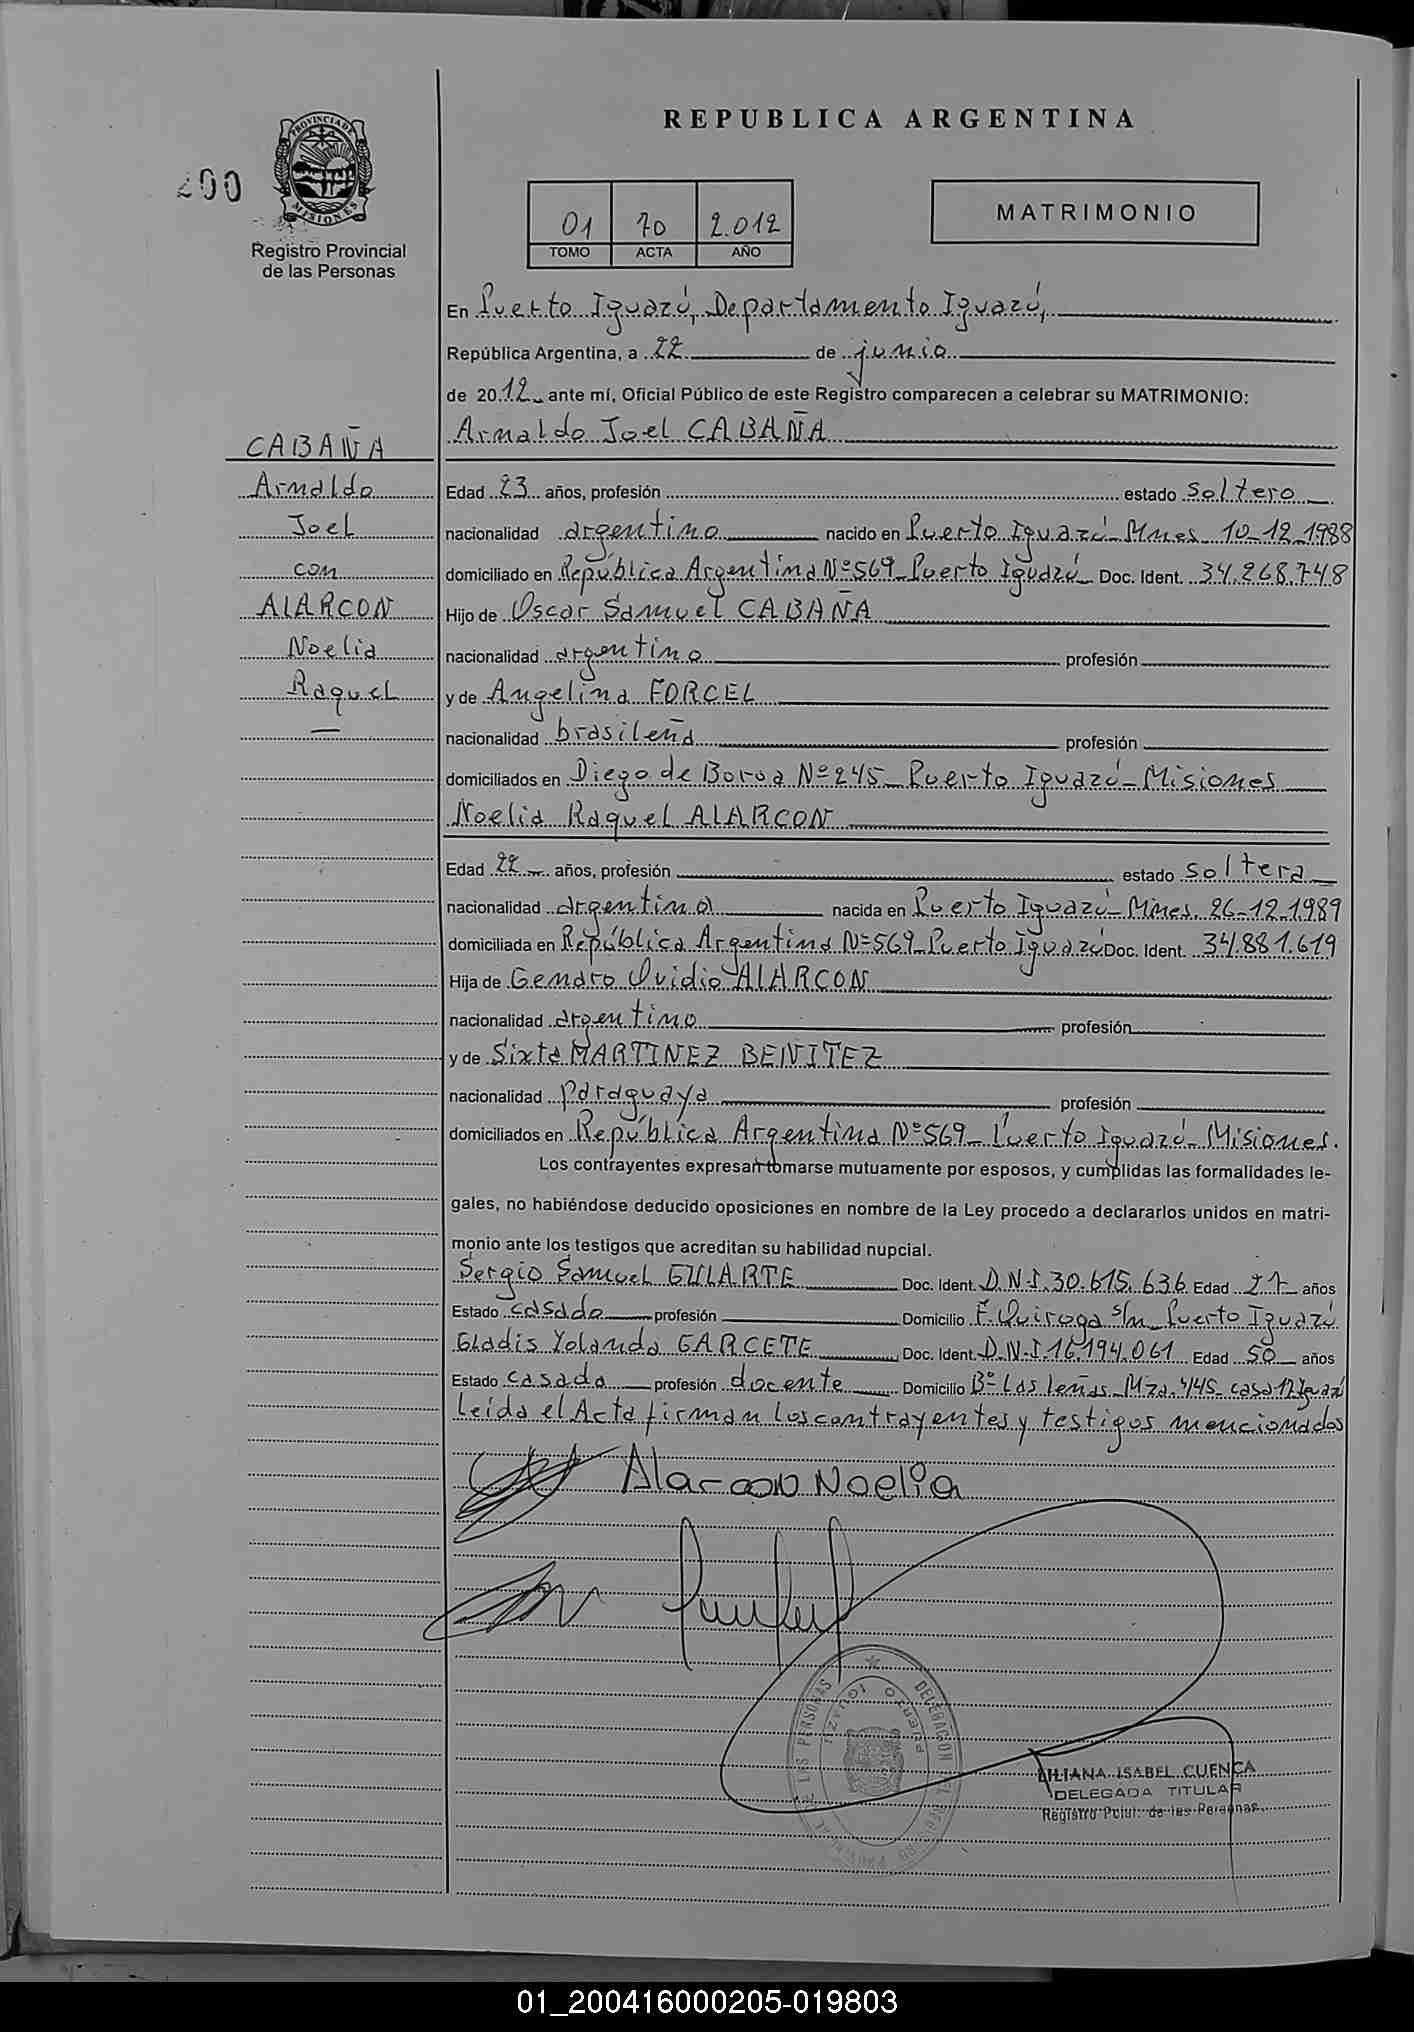 REPUBLICA ARGENTINA
200
PROVINCIA DE
MISIONES
Registro Provincial
de las Personas
01 70 2.012
TOMO ACTA AÑO
MATRIMONIO
En Puerto Iguazú, Departamento Iguazú,
República Argentina, a 22 de junio
de 2012 ante mí, Oficial Público de este Registro comparecen a celebrar su MATRIMONIO:
Arnaldo Joel CABAÑA
CABAÑA
Arnaldo
Joel
con
AlARCON
Noelia
Raquel
Edad 23 años, profesión estado soltero
nacionalidad argentino nacido en Puerto Iguazú-Mnes 10-12-1988
domiciliado en República Argentina Nº569-Puerto Iguazú Doc. Ident. 34.268.748
Hijo de Oscar Samuel CABAÑA
nacionalidad argentino profesión
y de Angelina FORCEL
nacionalidad brasileña profesión
domiciliados en Diego de Boroa Nº245-Puerto Iguazú-Misiones
Noelia Raquel AlARCON
Edad 22 años, profesión estado soltera
nacionalidad argentina nacida en Puerto Iguazú-Mnes. 26-12-1989
domiciliada en República Argentina Nº569-Puerto Iguazú Doc. Ident. 34.881.619
Hija de Genaro Ovidio AlARCON
nacionalidad argentino profesión
y de Sixta MARTINEZ BENITEZ
nacionalidad paraguaya profesión
domiciliados en República Argentina Nº569-Puerto Iguazú-Misiones.
Los contrayentes expresan tomarse mutuamente por esposos, y cumplidas las formalidades le-
gales, no habiéndose deducido oposiciones en nombre de la Ley procedo a declararlos unidos en matri-
monio ante los testigos que acreditan su habilidad nupcial.
Sergio Samuel GULARTE Doc. Ident. D.N.I.30.615.636 Edad años
Estado casado profesión Domicilio F.Quiroga s/n Puerto Iguazú
Gladis Yolanda GARCETE Doc. Ident. D.N.I.16.194.061 Edad 50 años
Estado casada profesión docente Domicilio Bº Las leñas-Mza.445-casa 12 Iguazú
leída el Acta firman los contrayentes y testigos mencionados
Alarcon Noelia
DELEGACION DEL REGISTRO PROVINCIAL DE LAS PERSONAS
PUERTO IGUAZU
LILIANA ISABEL CUENCA
DELEGADA TITULAR
Registro Pcial. de las Personas
01_200416000205-019803